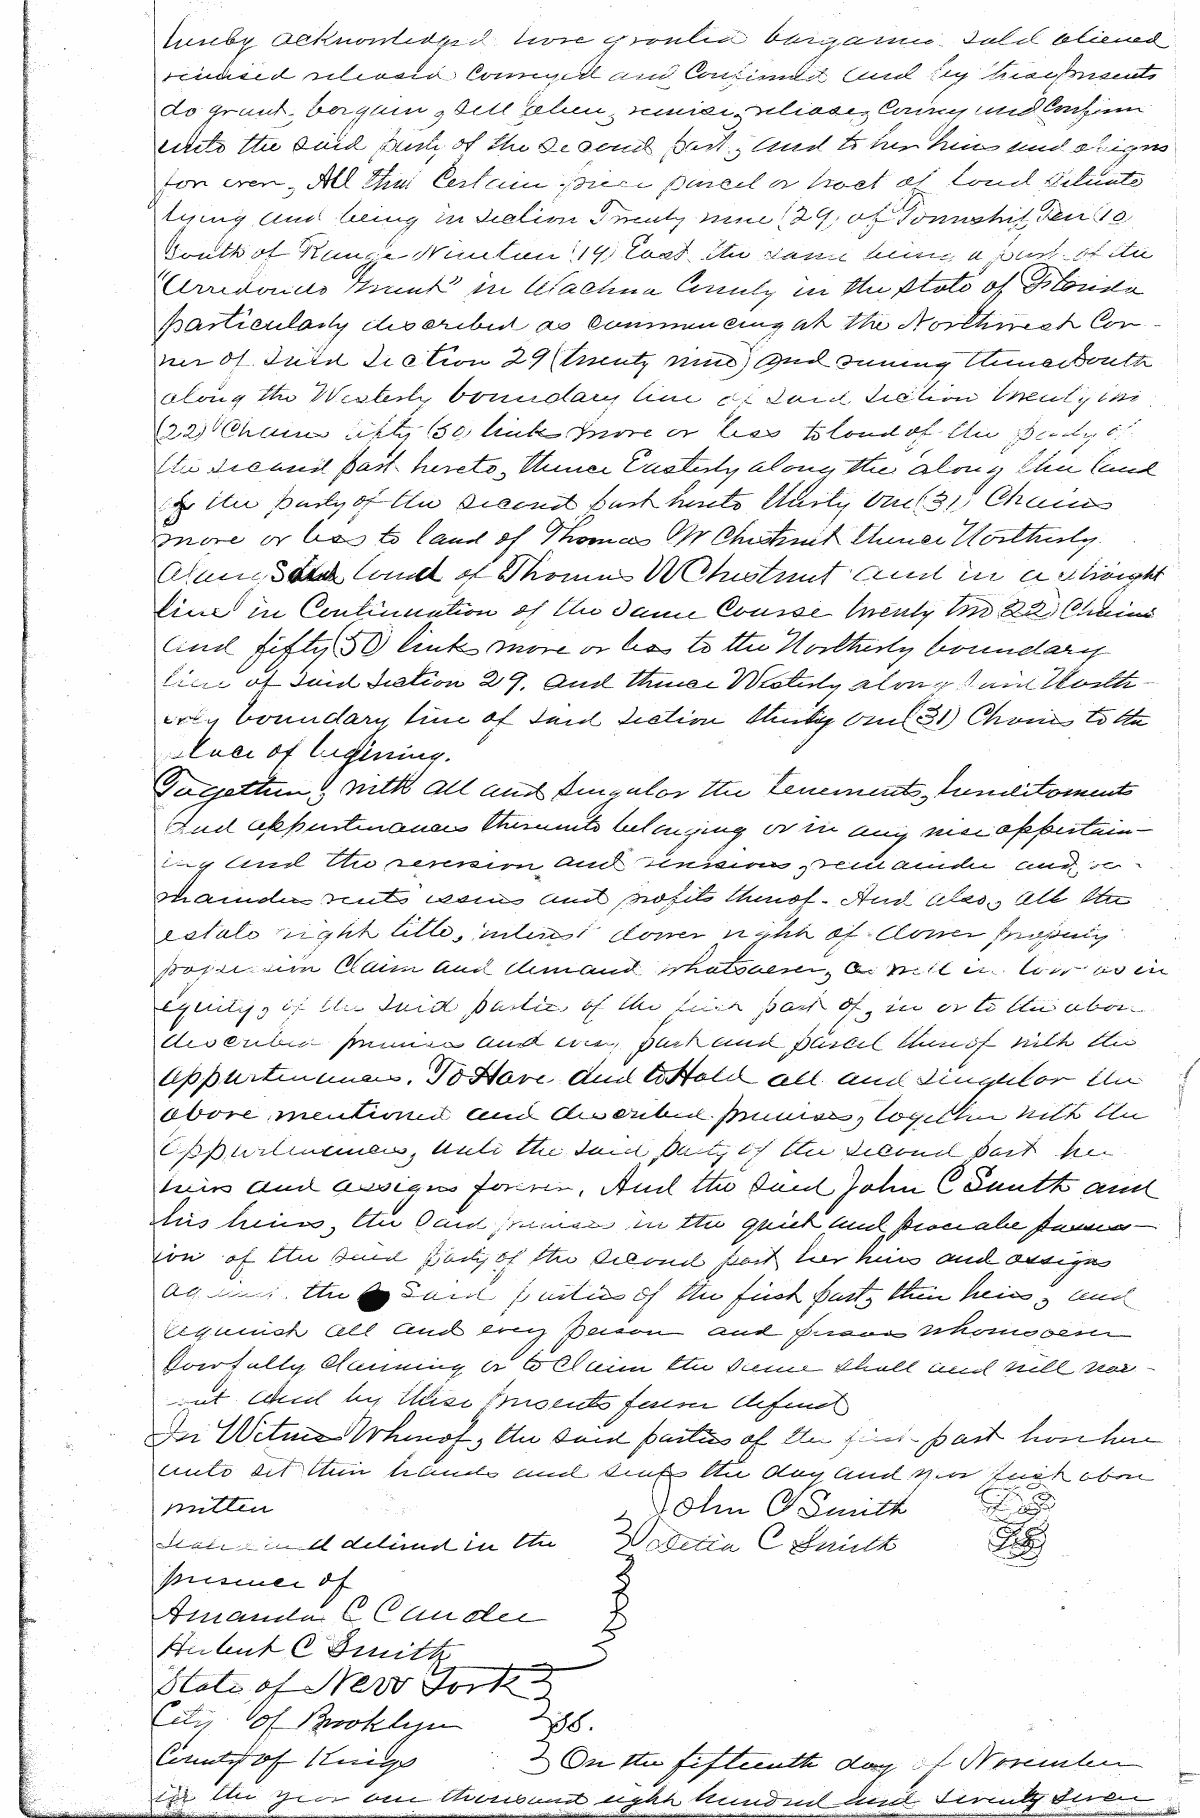 hereby acknowledged have granted bargained sold aliened
remised released Conveyed and Confirmed and by these presents
do grant, bargain, sell alien, remise, release, Convey and Confirm
unto the said party of the Second part, and to her heirs and assigns
for ever, All that Certain piece parcel or tract of land situate
lying and being in Section Twenty nine (29) of Township Ten (10
South of Range Nineteen (19) East the same being a part of the
"Arredondo Grant" in Alachua County in the State of Florida
particularly described as commencing at the Northwest Cor-
ner of said Section 29 (twenty nine) and runing thence South
along the Westerly boundary line of said Section twenty two
(22) Chains fifty (50) links more or less to land of the party of
the second part hereto, thence Easterly along the along the land
of the party of the second part hereto thirty One (31) Chains
more or less to land of Thomas W Chestnut thence Northerly
along said land of Thomas W Chestnut and in a straight
line in Continuation of the same Course twenty two 22) Chains
and fifty (50) links more or less to the Northerly boundary
line of said Section 29. and thence Westerly along said North-
erly boundary line of said Section thirty one (31) Chains to the
place of begining.
Together, with all and Singular the tenements, hereditaments
and appurtenances thereunto belonging or in any wise appertain-
ing and the reversion and reversions, remainder and re-
mainders rents issues and profits thereof. And also, all the
estate right title, interest dower right of dower property
possession Claim and demand whatsoever, as well in law as in
equity, of the said parties of the first part of, in or to the above
described premises and every part and parcel thereof with the
appurtenances. To Have and to Hold all and Singular the
above mentioned and described premises, together with the
appurtenances, unto the said party of the second part her
heirs and assigns forever. And the said John C Smith and
his heirs, the said premises in the quiet and peaceable possess-
ion of the said party of the second part her heirs and assigns
against the said parties of the first part, their heirs, and
against all and every person and persons whomsoever
lawfully claiming or to Claim the same shall and will war-
ant and by these presents forever defend
In Witness Whereof, the said parties of the first part have here
unto set their hands and seals the day and year first above
written John C Smith
Sealed and delivered in the C Smith
presence of
Amanda C
Hubert C Smith
State of New York
City of Brooklyn ss.
County of Kings On the fifteenth day of November
in the year one thousand eight hundred and seventy seven